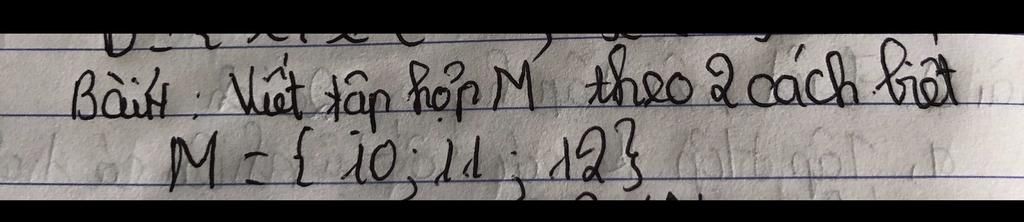 Bài 4: Viết tập hợp M theo 2 cách biết
M = { 10; 11; 12}